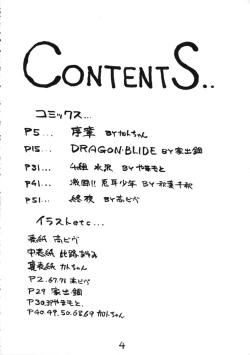 CONTENTS..
コミックス...
P5... 序章 BYカトちゃん
P15... DRAGON・BLIDE BY家出鋼
P31... 4組 水沢 BYやまもと
P41... 激闘!! 忍耳少年 BY 秋葉千秋
P51... 終夜 BY高ピペ
イラストetc...
表紙 高ピペ
中表紙
裏表紙 カトちゃん
P2.67.71 高ピペ
P29 家出鋼
P30.39やまもと.
P40.49.50.68.69 カトちゃん
4